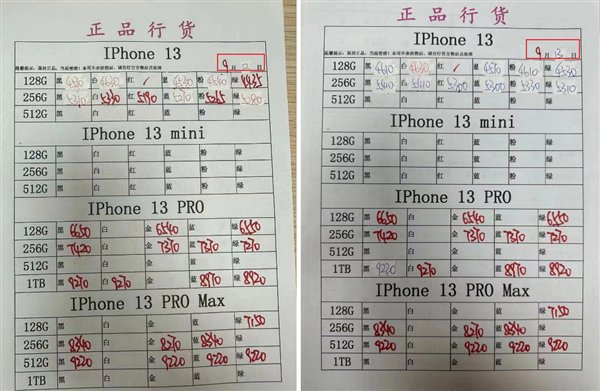 正品行货
IPhone 13
本司不承担售后,请自行官方售后点处理
9月12日
128G 黑 白 红 / 蓝 粉 绿 4425
256G 黑 白 5330 红 5190 蓝 5270 粉 5265 绿 5280
512G 黑 白 红 蓝 粉 绿
IPhone 13 mini
128G 黑 白 红 蓝 粉 绿
256G 黑 白 红 蓝 粉 绿
512G 黑 白 红 蓝 粉 绿
IPhone 13 PRO
128G 黑 6650 白 金 6540 蓝 绿 6550
256G 黑 7420 白 金 7370 蓝 7370 绿 7270
512G 黑 白 金 蓝 绿
1TB 黑 9270 白 9270 金 蓝 8970 绿 8920
IPhone 13 PRO Max
128G 黑 白 金 蓝 绿 7150
256G 黑 8340 白 金 8270 蓝 8340 绿
512G 黑 9220 白 金 9220 蓝 9220 绿 9220
1TB 黑 白 金 蓝 绿
正品行货
IPhone 13
本司不承担售后,请自行官方售后点处理
9月12日
128G 黑 4610 白 4630 红 / 蓝 4570 粉 4610 绿 4530
256G 黑 白 5410 红 5300 蓝 粉 5300 绿 5310
512G 黑 白 红 蓝 粉 绿
IPhone 13 mini
128G 黑 白 红 蓝 粉 绿
256G 黑 白 红 蓝 粉 绿
512G 黑 白 红 蓝 粉 绿
IPhone 13 PRO
128G 黑 6650 白 金 6540 蓝 绿 6550
256G 黑 7420 白 金 7370 蓝 7370 绿 7270
512G 黑 白 金 蓝 绿
1TB 黑 9220 白 9270 金 蓝 8970 绿 8920
IPhone 13 PRO Max
128G 黑 白 金 蓝 绿 7150
256G 黑 8340 白 金 8270 蓝 8340 绿
512G 黑 9220 白 金 9220 蓝 9220 绿 9220
1TB 黑 白 金 蓝 绿